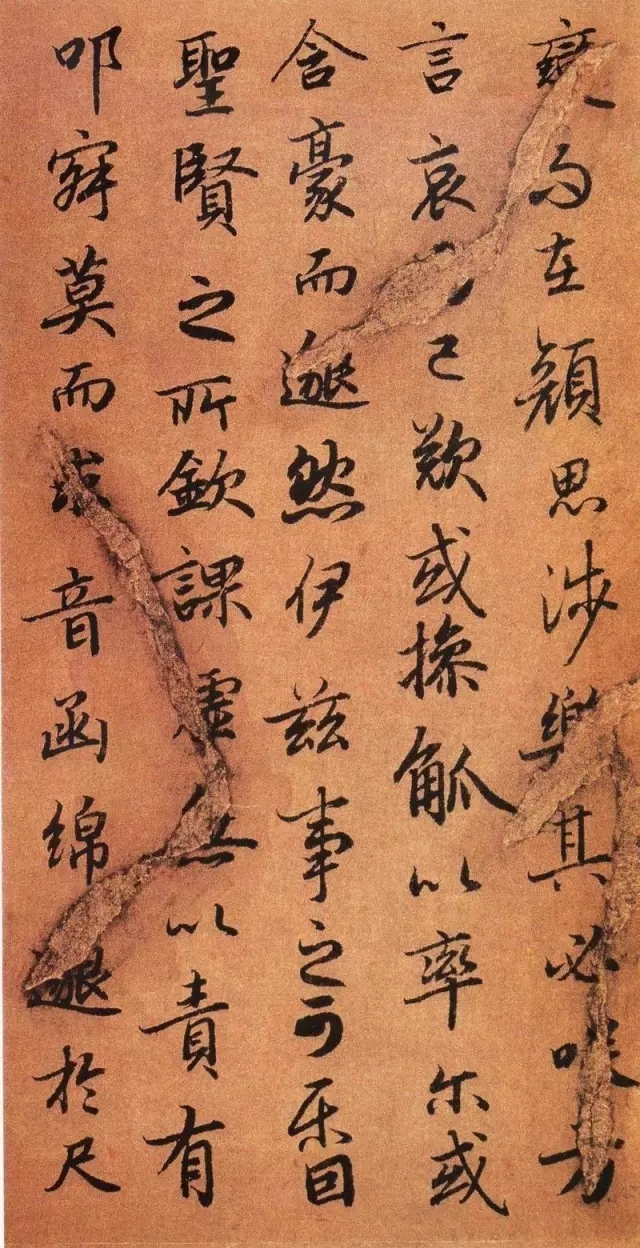 變而在顏思涉樂其必咲方
言哀已歎或操觚以率尔或
含豪而邈然伊兹事之可乐固
聖賢之所欽課虛無以責有
叩寂莫而求音函綿邈於尺